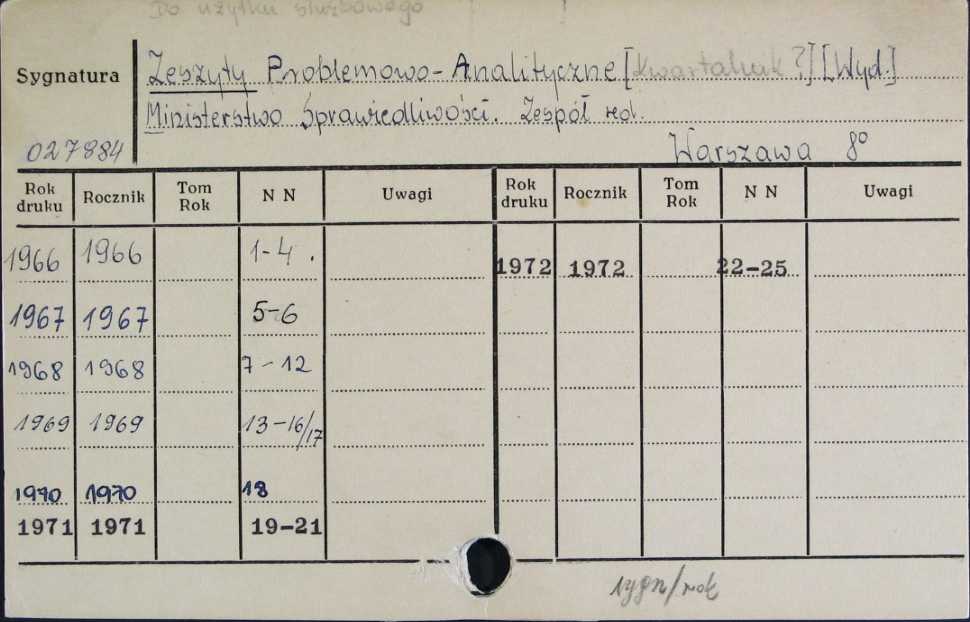 Do użytku służbowego
Sygnatura
Zeszyty Problemowo-Analityczne [Kwartalnik?] [Wyd.]
Ministerstwo Sprawiedliwości. Zespół red.
027884 Warszawa 8°
Rok druku Rocznik Tom Rok N N Uwagi Rok druku Rocznik Tom Rok N N Uwagi
1966 1966 1-4. 1972 1972 22-25
1967 1967 5-6
1968 1968 7-12
1969 1969 13-16/17
1970 1970 18
1971 1971 19-21
sygn/rok